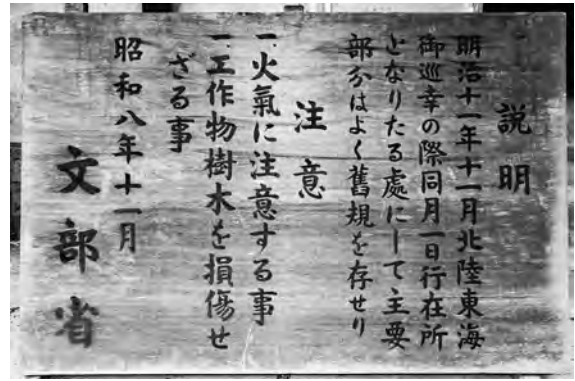 説明
明治十一年十一月北陸東海
御巡幸の際同月一日行在所
となりたる處にして主要
部分はよく舊規を存せり
注意
一火氣に注意する事
一工作物樹木を損傷せ
ざる事
昭和八年十一月
文部省